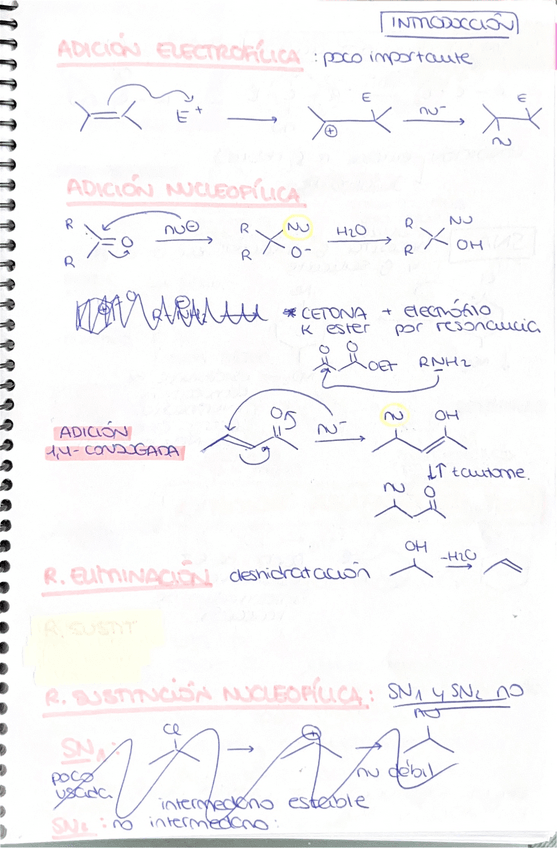 INTRODUCCIÓN
ADICIÓN ELECTROFÍLICA : poco importante
E+ E nu- E
nu
ADICIÓN NUCLEOFÍLICA
R R O nu⊖ R R NU O- H2O R R NU OH
* CETONA + electrófilo
k ester por resonancia
O O OEt RNH2
ADICIÓN
1,4-CONJUGADA
O nu- NU OH
↓↑ tautome.
NU O
R. ELIMINACIÓN deshidratación OH -H2O
R. SUSTIT
R. SUSTITUCIÓN NUCLEOFÍLICA : SN1 y SN2 no
SN1:
Cl ⊕ NU
poco
usada
nu débil
intermedono estable
SN2 : no intermedono :